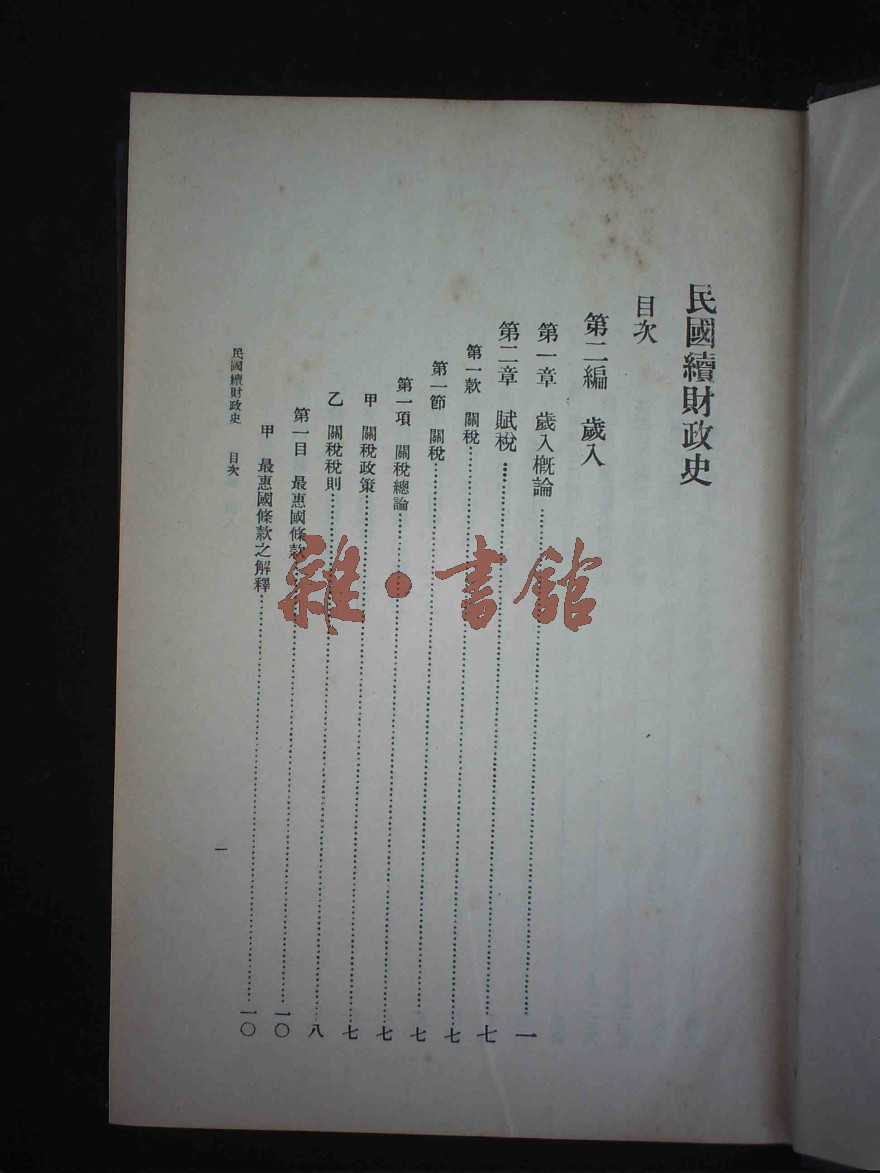 民國續財政史
目次
第二編　歲入
第一章　歲入概論……一
第二章　賦稅……七
第一款　關稅……七
第一節　關稅……七
第一項　關稅總論……七
甲　關稅政策……七
乙　關稅稅則……八
第一目　最惠國條款……一〇
甲　最惠國條款之解釋……一〇
民國續財政史　目次　一
雜·書館